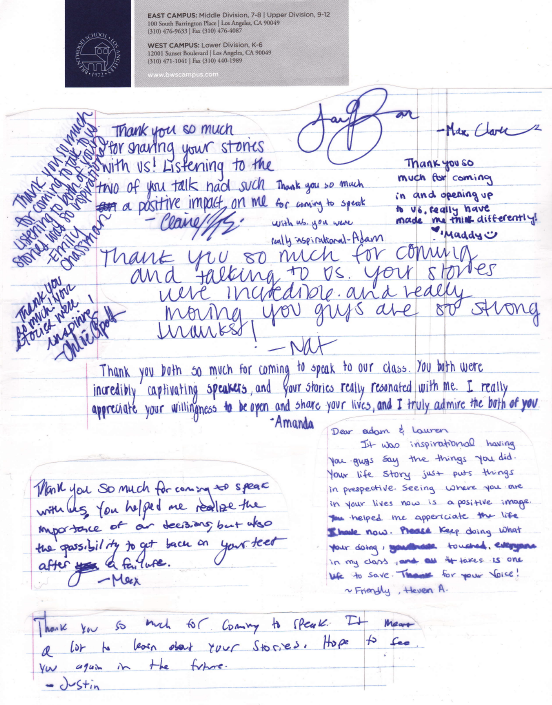 EAST CAMPUS: Middle Division, 7-8 | Upper Division, 9-12
100 South Barrington Place | Los Angeles, CA 90049
(310) 476-9633 | Fax (310) 476-4087
WEST CAMPUS: Lower Division, K-6
12001 Sunset Boulevard | Los Angeles, CA 90049
(310) 471-1041 | Fax (310) 440-1989
www.bwscampus.com
Thank you so much
for coming to talk to us
Listening to both of your
stories was so inspirational
- Emily
Chassman
Thank you so much
for sharing your stories
with us! Listening to the
two of you talk had such
a positive impact on me
- Claire
-Max Clark
Thank you so much
for coming to speak
with us. you were
really inspirational-Adam
Thank you so
much for coming
in and opening up
to us, really have
made me think differently!
Maddy
Thank you so much for coming
and talking to us. your stories
were incredible and really
moving you guys are so strong
thanks!
- Nat
Thank you
so much! your
stories were
inspiring!
-Chloe
Thank you both so much for coming to speak to our class. You both were
incredibly captivating speakers, and your stories really resonated with me. I really
appreciate your willingness to be open and share your lives, and I truly admire the both of you
-Amanda
Dear adam & Lauren
It was inspirational having
you guys say the things you did.
Your life story just puts things
in prespective. Seeing where you are
in your lives now is a positive image.
You helped me apperciate the life
I have now. Please keep doing what
your doing, touched, everyone
in my class, and all it takes is one
life to save. Thanks for your Voice!
~ Friendly, Haven A.
Thank you so much for coming to speak
with us. You helped me realize the
importance of our decisions, but also
the possibility to get back on your feet
after a failure.
- Max
Thank you so much for coming to speak. It meant
a lot to learn about your stories. Hope to see
you again in the future.
- Justin